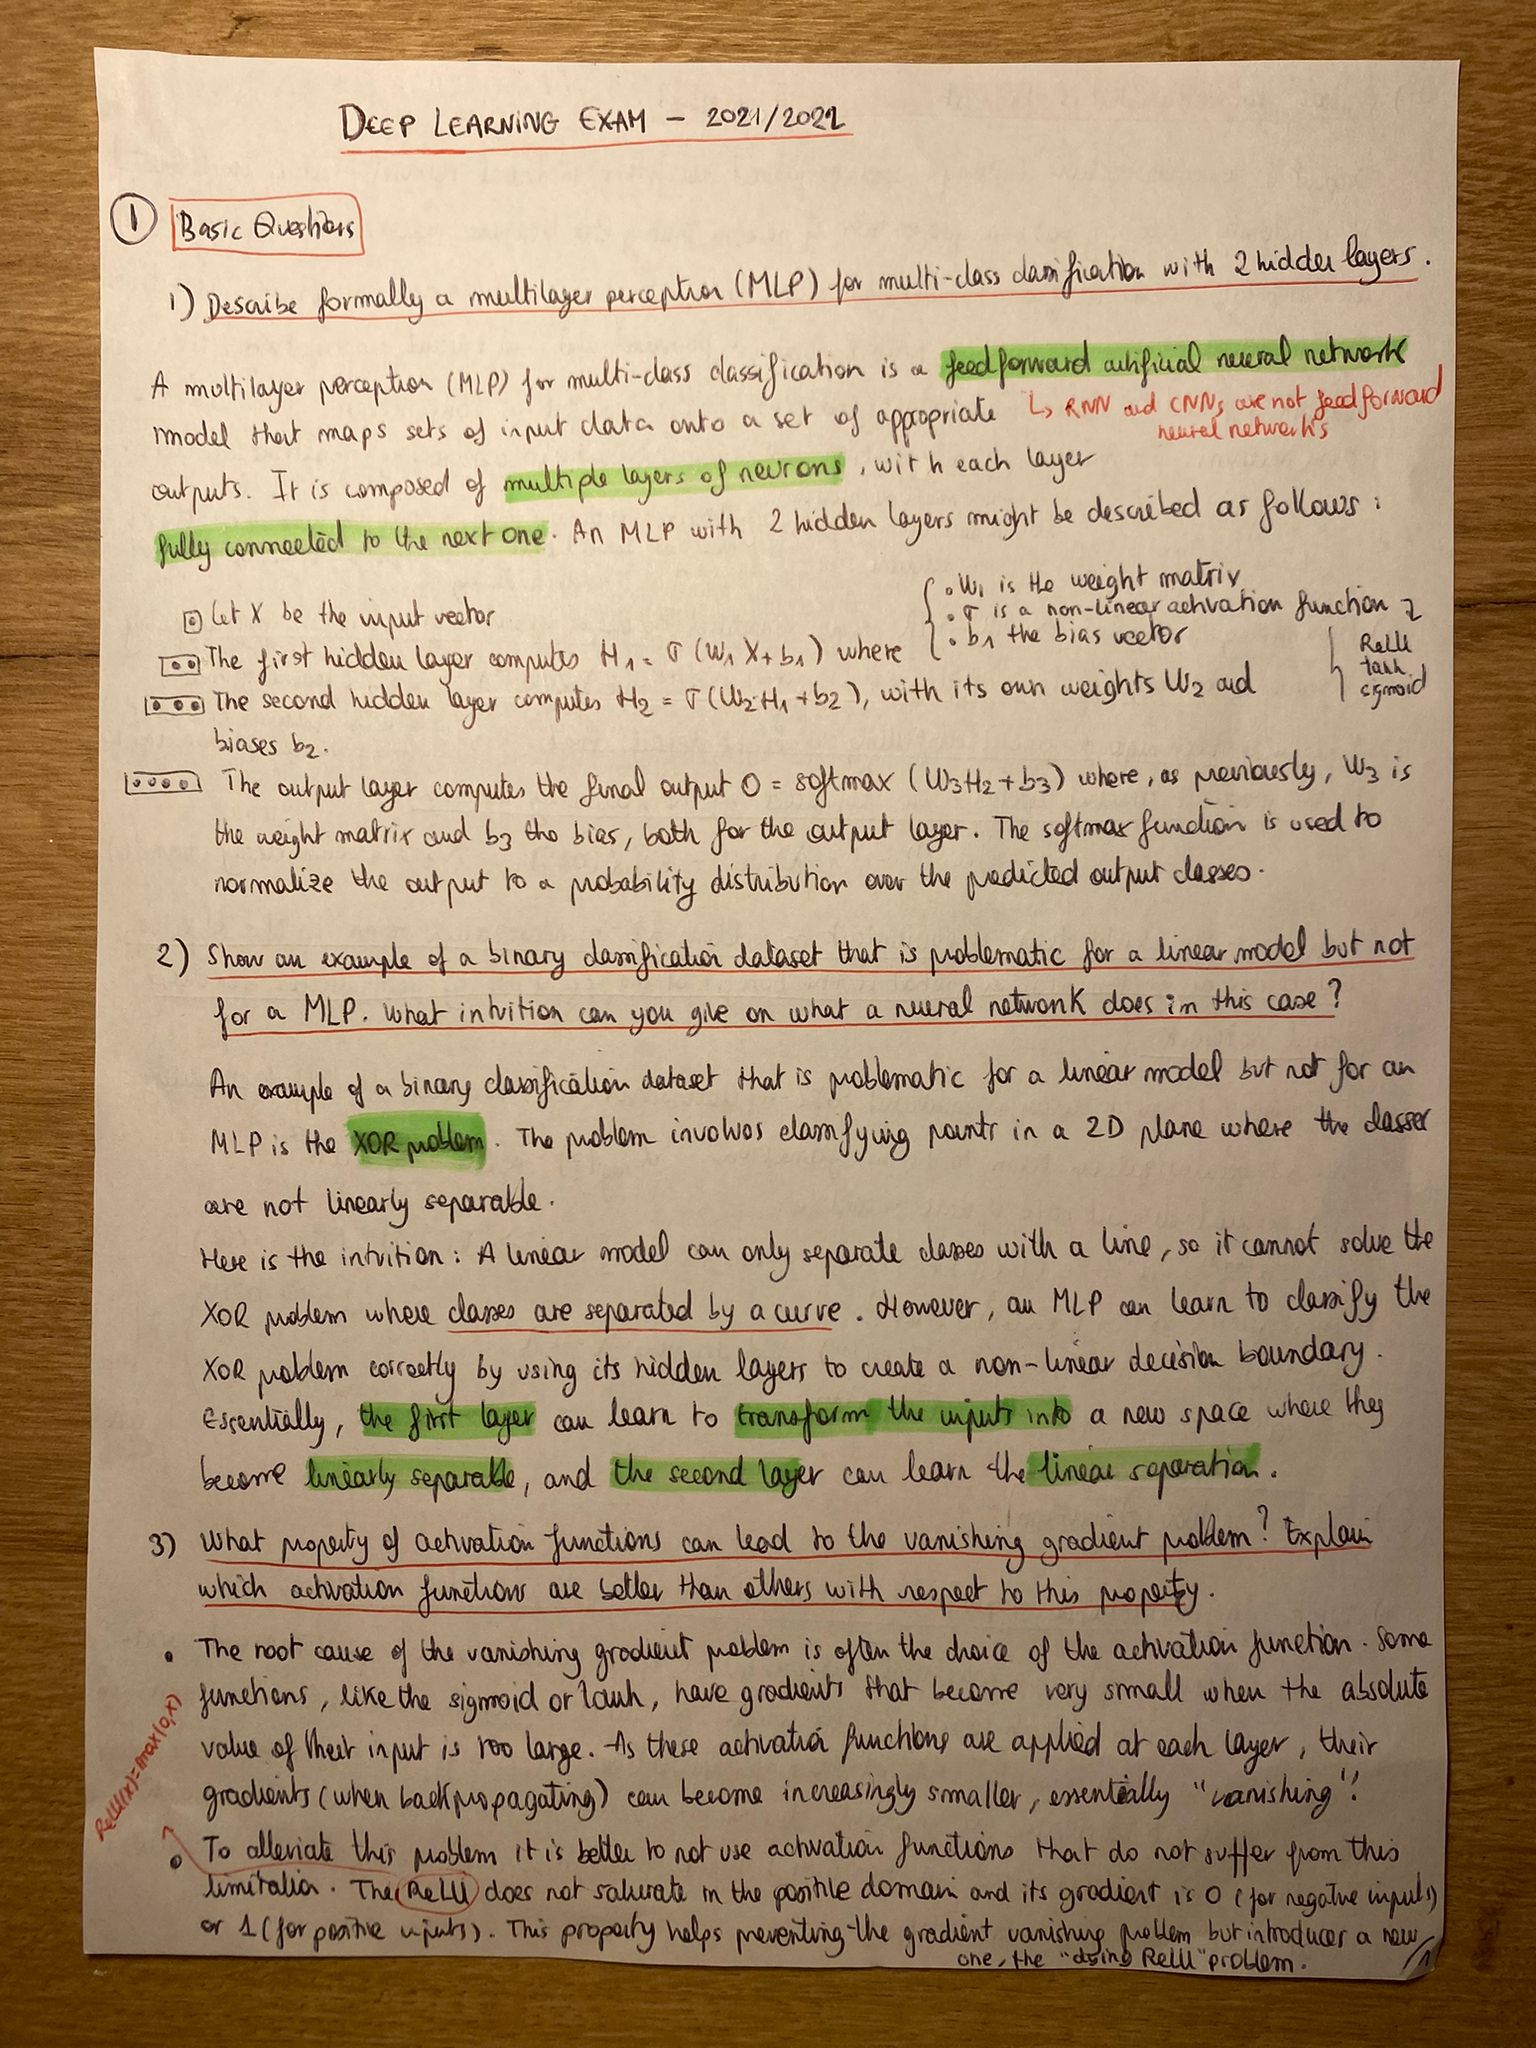 DEEP LEARNING EXAM – 2021/2022
1 Basic Questions
1) Describe formally a multilayer perceptron (MLP) for multi-class classification with 2 hidden layers.
A multilayer perceptron (MLP) for multi-class classification is a feedforward artificial neural network
model that maps sets of input data onto a set of appropriate ↳ RNN and CNNs are not feedforward
neural networks
outputs. It is composed of multiple layers of neurons, with each layer
fully connected to the next one. An MLP with 2 hidden layers might be described as follows:
• W1 is the weight matrix
Let X be the input vector
• σ is a non-linear activation function
The first hidden layer computes H1 = σ(W1 X + b1) where
• b1 the bias vector
ReLU
tanh
sigmoid
The second hidden layer computes H2 = σ(W2·H1 + b2), with its own weights W2 and
biases b2.
The output layer computes the final output O = softmax (W3H2 + b3) where, as previously, W3 is
the weight matrix and b3 the bias, both for the output layer. The softmax function is used to
normalize the output to a probability distribution over the predicted output classes.
2) Show an example of a binary classification dataset that is problematic for a linear model but not
for a MLP. What intuition can you give on what a neural network does in this case?
An example of a binary classification dataset that is problematic for a linear model but not for an
MLP is the XOR problem. The problem involves classifying points in a 2D plane where the classes
are not linearly separable.
Here is the intuition: A linear model can only separate classes with a line, so it cannot solve the
XOR problem where classes are separated by a curve. However, an MLP can learn to classify the
XOR problem correctly by using its hidden layers to create a non-linear decision boundary.
Essentially, the first layer can learn to transform the inputs into a new space where they
become linearly separable, and the second layer can learn the linear separation.
3) What property of activation functions can lead to the vanishing gradient problem? Explain
which activation functions are better than others with respect to this property.
• The root cause of the vanishing gradient problem is often the choice of the activation function. Some
functions, like the sigmoid or tanh, have gradients that become very small when the absolute
value of their input is too large. As these activation functions are applied at each layer, their
gradients (when backpropagating) can become increasingly smaller, essentially "vanishing"!
ReLU(x)=max(0,x)
• To alleviate this problem it is better to not use activation functions that do not suffer from this
limitation. The ReLU does not saturate in the positive domain and its gradient is 0 (for negative inputs)
or 1 (for positive inputs). This property helps preventing the gradient vanishing problem but introduces a new
one, the "dying ReLU" problem.
/1